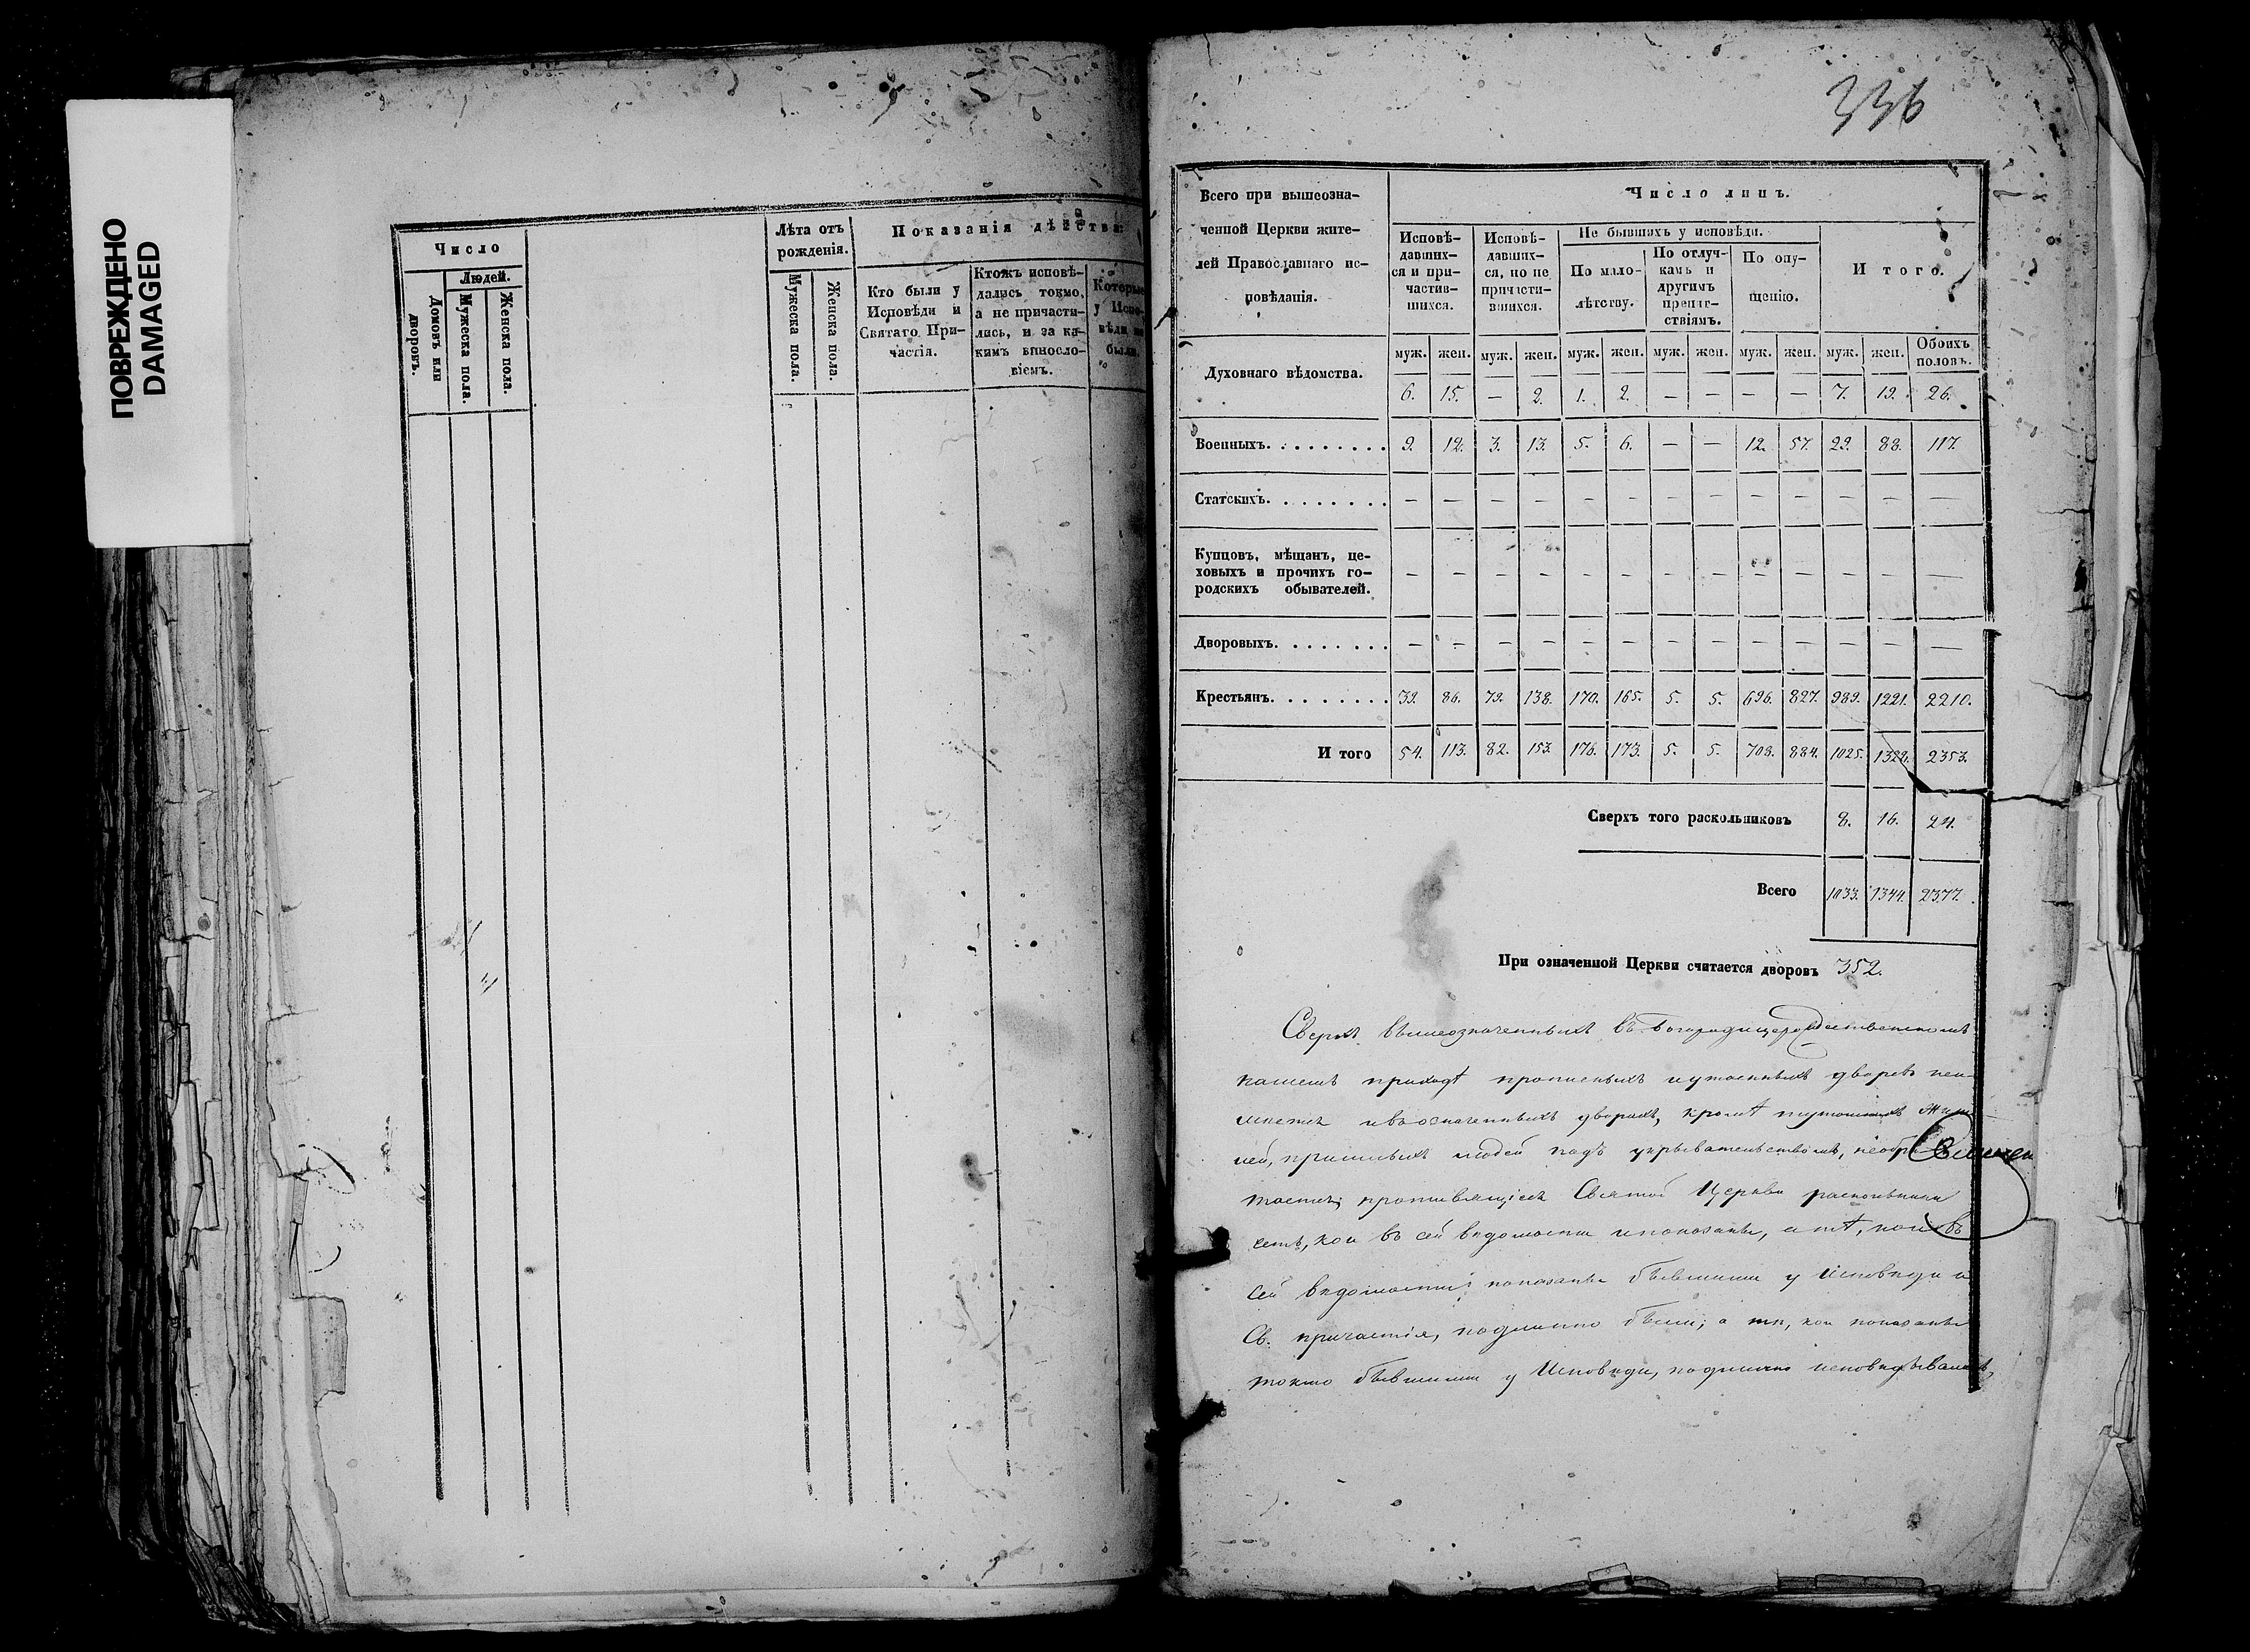 ПОВРЕЖДЕНО
DAMAGED
Число
Людей.
Домовъ или дворовъ.
Мужеска пола.
Женска пола.
Лѣта отъ
рожденія.
Мужеска пола.
Женска пола.
Показанія дѣйства:
Кто были у
Исповѣди и
Святаго При-
частія.
Ктожъ исповѣ-
дались токмо,
а не причасти-
лись, и за ка-
кимъ винословіемъ.
Которые
у Испо-
вѣди не
были.
336
Всего при вышеозна-
ченной Церкви жите-
лей Православнаго ис-
повѣданія.
Число лицъ.
Исповѣ-
давших-
ся и при-
частив-
шихся.
Исповѣ-
давших-
ся, но не
причасти-
вшихся.
Не бывшихъ у исповѣди.
По мало-
лѣтству.
По отлуч-
камъ и
другимъ
препят-
ствіямъ.
По опу-
щенію.
И того.
муж. жен. муж. жен. муж. жен. муж. жен. муж. жен. муж. жен. Обоихъ половъ.
Духовнаго вѣдомства. 6. 15. — 2. 1. 2. — — — — 7. 19. 26.
Военныхъ. 9. 12. 3. 13. 5. 6. — — 12. 57. 29. 88. 117.
Статскихъ. — — — — — — — — — — — —
Купцовъ, мѣщанъ, це-
ховыхъ и прочихъ го- — — — — — — — — — — — — —
родскихъ обывателей.
Дворовыхъ. — — — — — — — — — — — — —
Крестьянъ. 39. 86. 79. 138. 170. 165. 5. 5. 696. 827. 989. 1221. 2210.
И того 54. 113. 82. 153. 176. 173. 5. 5. 708. 884. 1025. 1328. 2353.
Сверхъ того раскольниковъ 8. 16. 24.
Всего 1033. 1344. 2377.
При означенной Церкви считается дворовъ 352.
Сверхъ вышеозначенныхъ въ Богородицерождественскомъ
нашемъ приходѣ прописныхъ и утаенныхъ дворовъ неи-
мѣется и въ означенныхъ дворахъ, кромѣ
пришлыхъ людей подъ укрывательствомъ,
Священ
противящіеся Святой Церкви раскольники
есть, кои въ сей вѣдомости и показаны, а тѣ, кои въ
сей вѣдомости показаны бывшими у Исповѣди и
Св. причастія, подлинно были; а тѣ, кои показаны
токмо бывшими у Исповѣди, подлинно исповѣдывались,